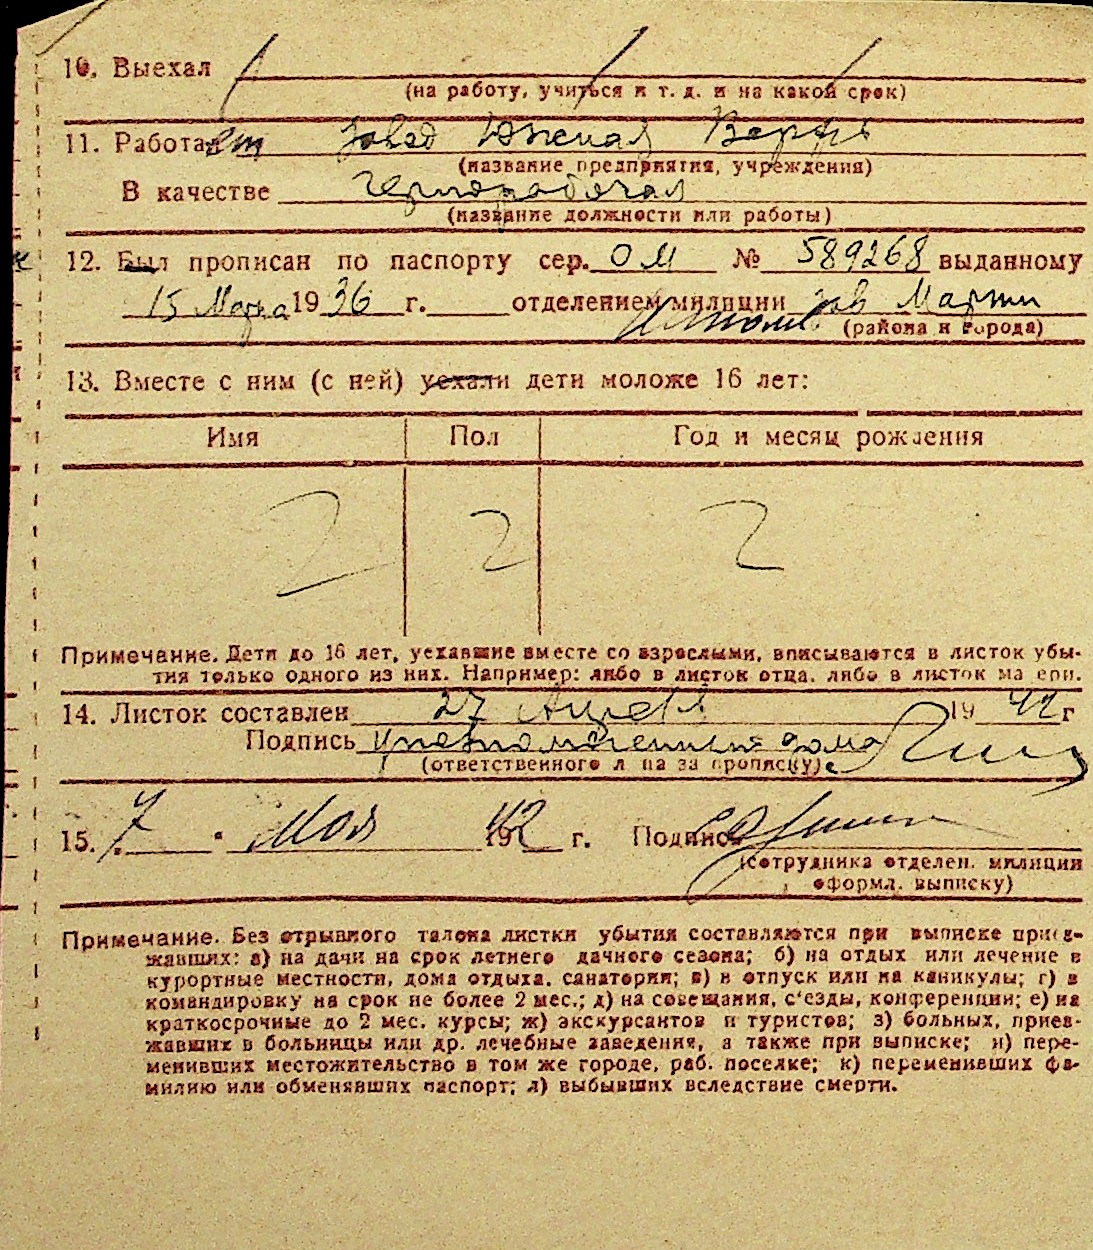 10. Выехал
(на работу, учиться и т. д. и на какой срок)
11. Работает завод Южная Верфь
(название предприятия, учреждения)
В качестве чернорабочая
(название должности или работы)
12. Был прописан по паспорту сер. ОМ № 589268 выданному
15 Марта 1936 г. отделением милиции зав Марти
(района и города)
13. Вместе с ним (с ней) уехали дети моложе 16 лет:
Имя Пол Год и месяц рождения
Z Z Z
Примечание. Дети до 16 лет, уехавшие вместе со взрослыми, вписываются в листок убы-
тия только одного из них. Например: либо в листок отца, либо в листок матери.
14. Листок составлен 27 Апреля 1942 г
Подпись дома
(ответственного лица за прописку)
15. 7 " Мая 1942 г. Подпись
(сотрудника отделен. милиции
оформл. выписку)
Примечание. Без отрывного талона листки убытия составляются при выписке приез-
жавших: а) на дачи на срок летнего дачного сезона; б) на отдых или лечение в
курортные местности, дома отдыха, санатории; в) в отпуск или на каникулы; г) в
командировку на срок не более 2 мес.; д) на совещания, с'езды, конференции; е) на
краткосрочные до 2 мес. курсы; ж) экскурсантов и туристов; з) больных, приез-
жавших в больницы или др. лечебные заведения, а также при выписке; и) пере-
менивших местожительство в том же городе, раб. поселке; к) переменивших фа-
милию или обменявших паспорт; л) выбывших вследствие смерти.